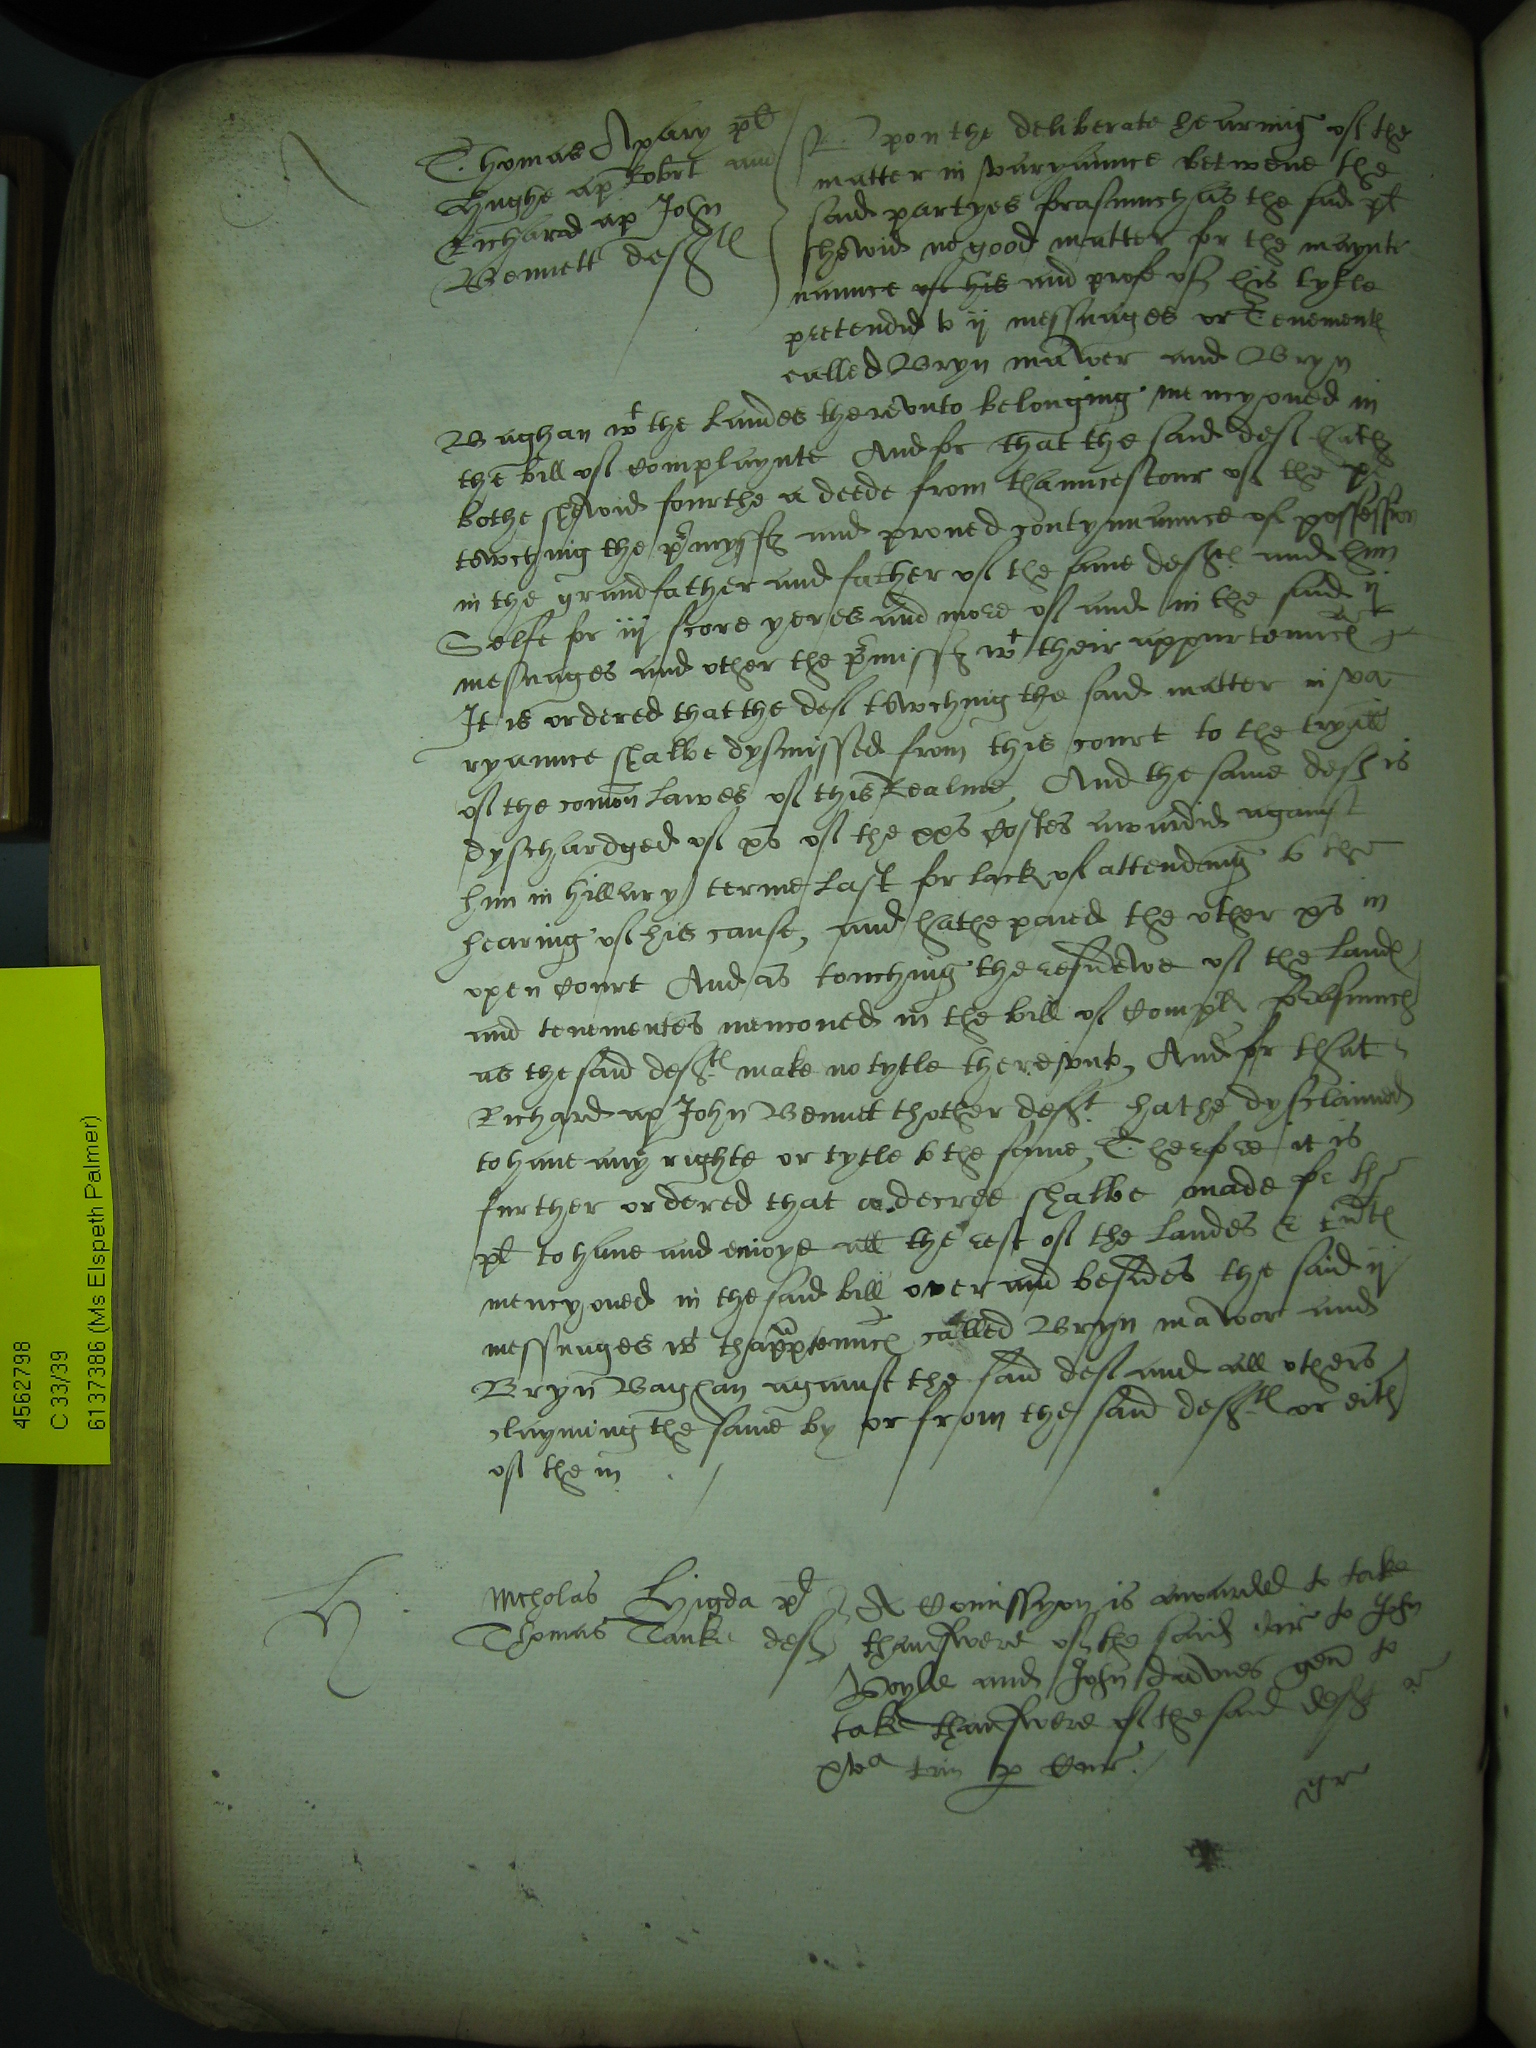 Thomas Apary pl
Hughe ap Robrt and
Richard ap John
Bennett deftes
Upon the deliberate hearing of the
matter in varyaunce betwene the
said partyes forasmuch as the said pl
shewid no good matter for the maynte
naunce of his and profe of his tytle
pretendid to ij messuages or Tenementes
called Bryn mawer and Bryn
Vaghan wt the Landes therevnto belonging mencyoned in
the bill of complaynte And for that the said def hath
bothe shewid fourthe a deede from thauncestour of the pl
towching the pmyssz and proued contynuaunce of possession
in the grandfather and father of the same deftes and him
Selfe for iij score yeres and more of and in the said ij
mesuages and other the pmissz wt their appurtenaunces
It is ordered that the def towching the said matter in va
ryaunce shalbe dysmissed from this court to the tryall
of the comon Lawes of this Realme And the same def is
dyschardged of xs of the xxs Costes awardid against
him in hillary terme Last for lack of attending to the
hearing of his cause, and hathe paied the other xs in
open Court And as touching the residewe of the Landes
and tenementes menconed in the bill of Compl forasmuch
as the said deftes make no tytle therevnto, And for that
Richard ap John Bennett thother deft hathe dysclaimed
to haue any righte or tytle to the same, Therefore it is
further ordered that a decree shalbe made for the
pl to haue and enioye all the rest of the Landes & tentes
mencyoned in the said bill over and besides the said ij
messuages wt thappurtenaunces called Bryn mawor and
Bryn Vaghan against the said def and all others
clayming the same by or from the said deftes or eith
of them
Nicholas Lyigda pl
Thomas Tanke def
A Comissyon is awarded to take
thanswere of the said to John
Boyle and John davies gen to
take thanswere of the said deft
xva trin p Cur
gr
4562798
C 33/39
6137386 (Ms Elspeth Palmer)